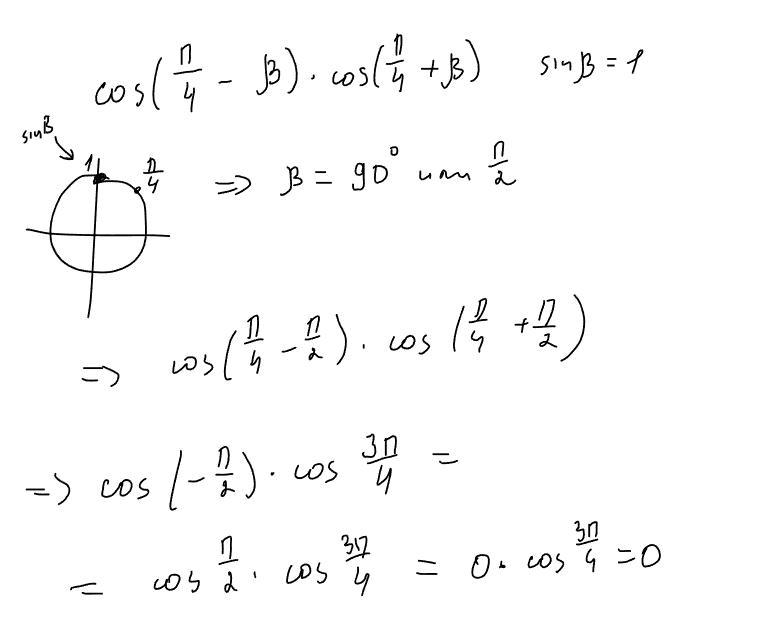 cos(π/4 - β) · cos(π/4 + β) sinβ = 1
sinβ
1 π/4 => β = 90° или π/2
=> cos(π/4 - π/2) · cos(π/4 + π/2)
=> cos(-π/2) · cos 3π/4 =
= cos π/2 · cos 3π/4 = 0 · cos 3π/4 = 0